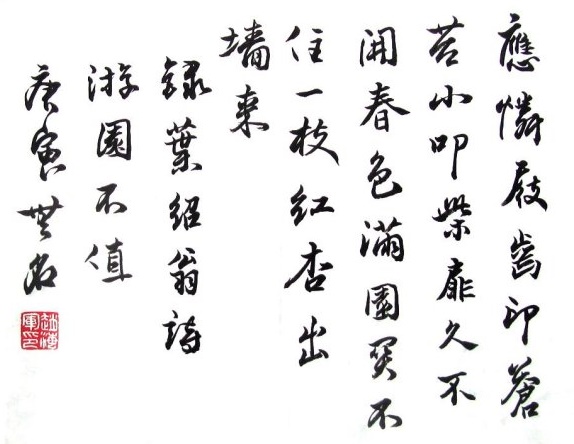 應憐屐齒印蒼
苔小叩柴扉久不
開春色滿園關不
住一枝紅杏出
墻來
録葉紹翁詩
游園不值
庚寅